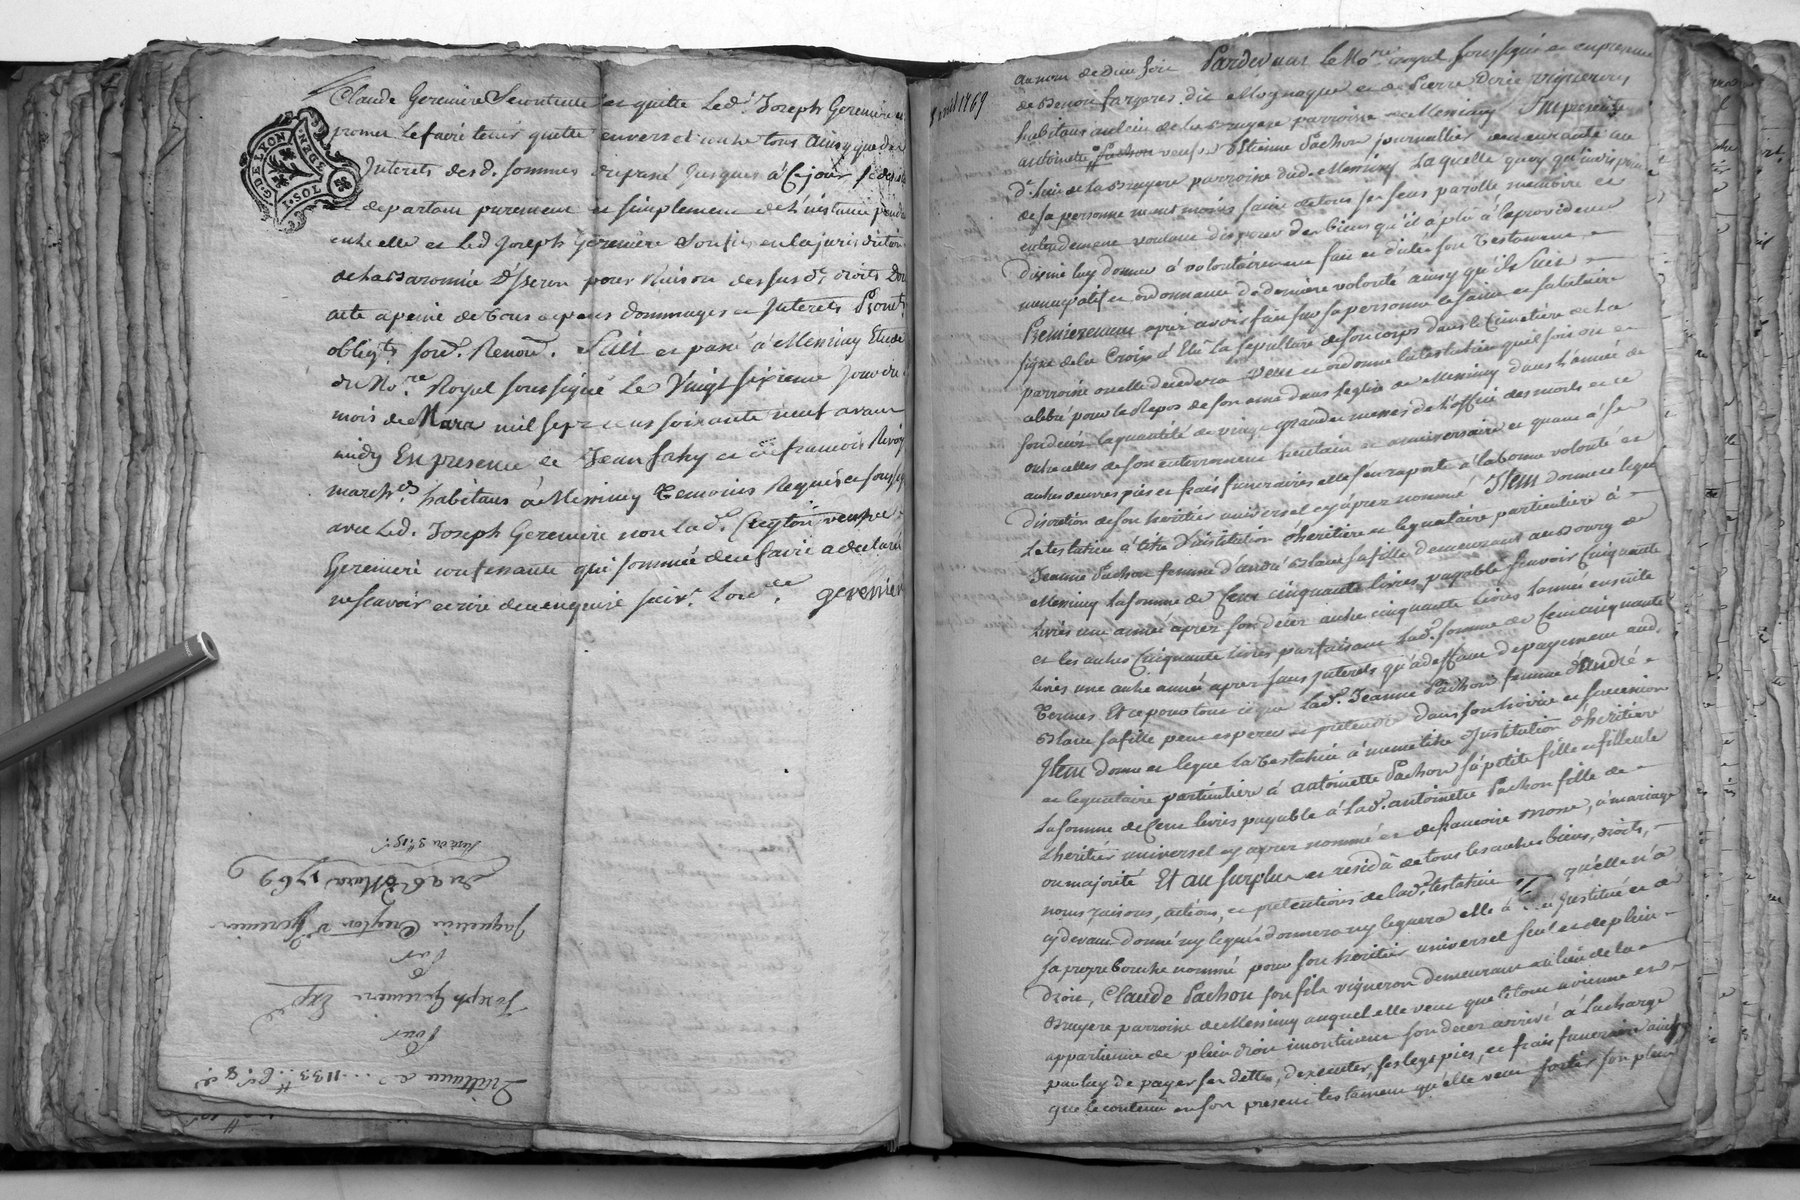 Claude Geremiere Se contente et quitte Led. Joseph Geremiere et
promet Le faire tenir quitte envers et contre tous Ainsy que des
Interets des d. sommes du passé jusques à Ce jour se
departant purement et simplement de L'instance
entre elle et Led Joseph Geremiere Son fils en la jurisdiction
de La Baronnie D'Iseron pour Raison des sus d. droits Dont
acte à peine de tous depens dommages et Interets
obligts. sous. Renon. Fait et passé à Messimy Etude
du No.re Royal soussigné Le Vingt sixieme Jour du
mois de Mars mil sept cens soixante neuf avant
midy En presence de Jean Fahy et de francois
march.ds habitans à Messimy Temoins Requis et soussignés
avec Led. Joseph Geremiere non la d. Creyton veuve
Geremiere contenante qui sommée de ce faire a declaré
ne scavoir ecrire de ce enquise suiv. L'ord.ce geremier
G. DE LYON
1. SOL
Quittance de ... 1133
Pour
Joseph Geremiere
Par
Jaqueline Creyton ve Geremier
Du 26 Mars 1769
avril 1769
Au nom de Dieu soit Pardevant le No.re royal soussigné et en presence
de Benoit fargeres dit Mognaque et de Pierre vignerons
habitans au lieu de La Bruyere parroisse de Messimy Fut presente
antoinette veuve Etienne Pachon journallier demeurante au
d. Lieu de la Bruyere parroisse dud. Messimy Laquelle quoy qu'indisposée
de sa personne neant moins saine de tous ses sens parolle memoire et
entendement voulant disposer des biens qu'il a plû à la providence
divine luy donner a volontairement fait et dicté son Testament
nuncupatif et ordonnance de derniere volonté ainsy qu'il suit
Premierement après avoir fait sur sa personne le saint et salutaire
signe de la Croix a Elû La sepulture de son corps dans le Cimetiere de La
parroisse ou elle decedera Veut et ordonne la testatrice qu'il soit dit et
celebré pour le Repos de son ame dans l'eglise de Messimy dans l'année de
son decès la quantité de vingt grandes messes de L'office des morts et ce
outre celles de son enterrement huitain et anniversaire et quant à ses
autres oeuvres pies et frais funeraires elle s'en raporte à la bonne volonté et
discretion de son heritier universel cy après nommé Item donne et legue
La testatrice à titre D'institution d'heritiere et leguataire particuliere à
Jeanne Pachon femme d'andré Blanc sa fille demeurant au Bourg de
Messimy La somme de Cent cinquante livres, payable scavoir Cinquante
livres une année après son decès autre cinquante livres l'année ensuite
et les autres Cinquante livres parfaisant Lad. somme de Cent cinquante
livres une autre année après sans interets qu'à deffaut de payement aud.
termes Et ce pour tout ce que Lad. Jeanne Pachon femme d'andré
Blanc sa fille peut esperer et pretendre dans son hoirie et succession
Item donne et legue La testatrice à même titre d'institution d'heritiere
et leguataire particuliere à antoinette Pachon sa petite fille et filleule
La somme de Cent livres payable à Lad. antoinette Pachon fille de
L'heritier universel cy après nommé et de francoise à mariage
ou majorité Et au surplus et residû de tous les autres biens, droits,
noms, raisons, actions, et pretentions de lad. testatrice qu'elle n'a
cy devant donné ny legué donnera ny leguera elle à institué et de
sa propre bouche nommé pour son heritier universel seul et de plein
droit, Claude Pachon son fils vigneron demeurant au lieu de La
Bruyere parroisse de Messimy auquel elle veut que le tout avienne et
appartienne de plein droit incontinent son decès arrivé à la charge
par luy de payer ses dettes, d'executer, ses legs pies, et frais funeraires ainsy
que le contenu en son present testament qu'elle veut sortir son plein